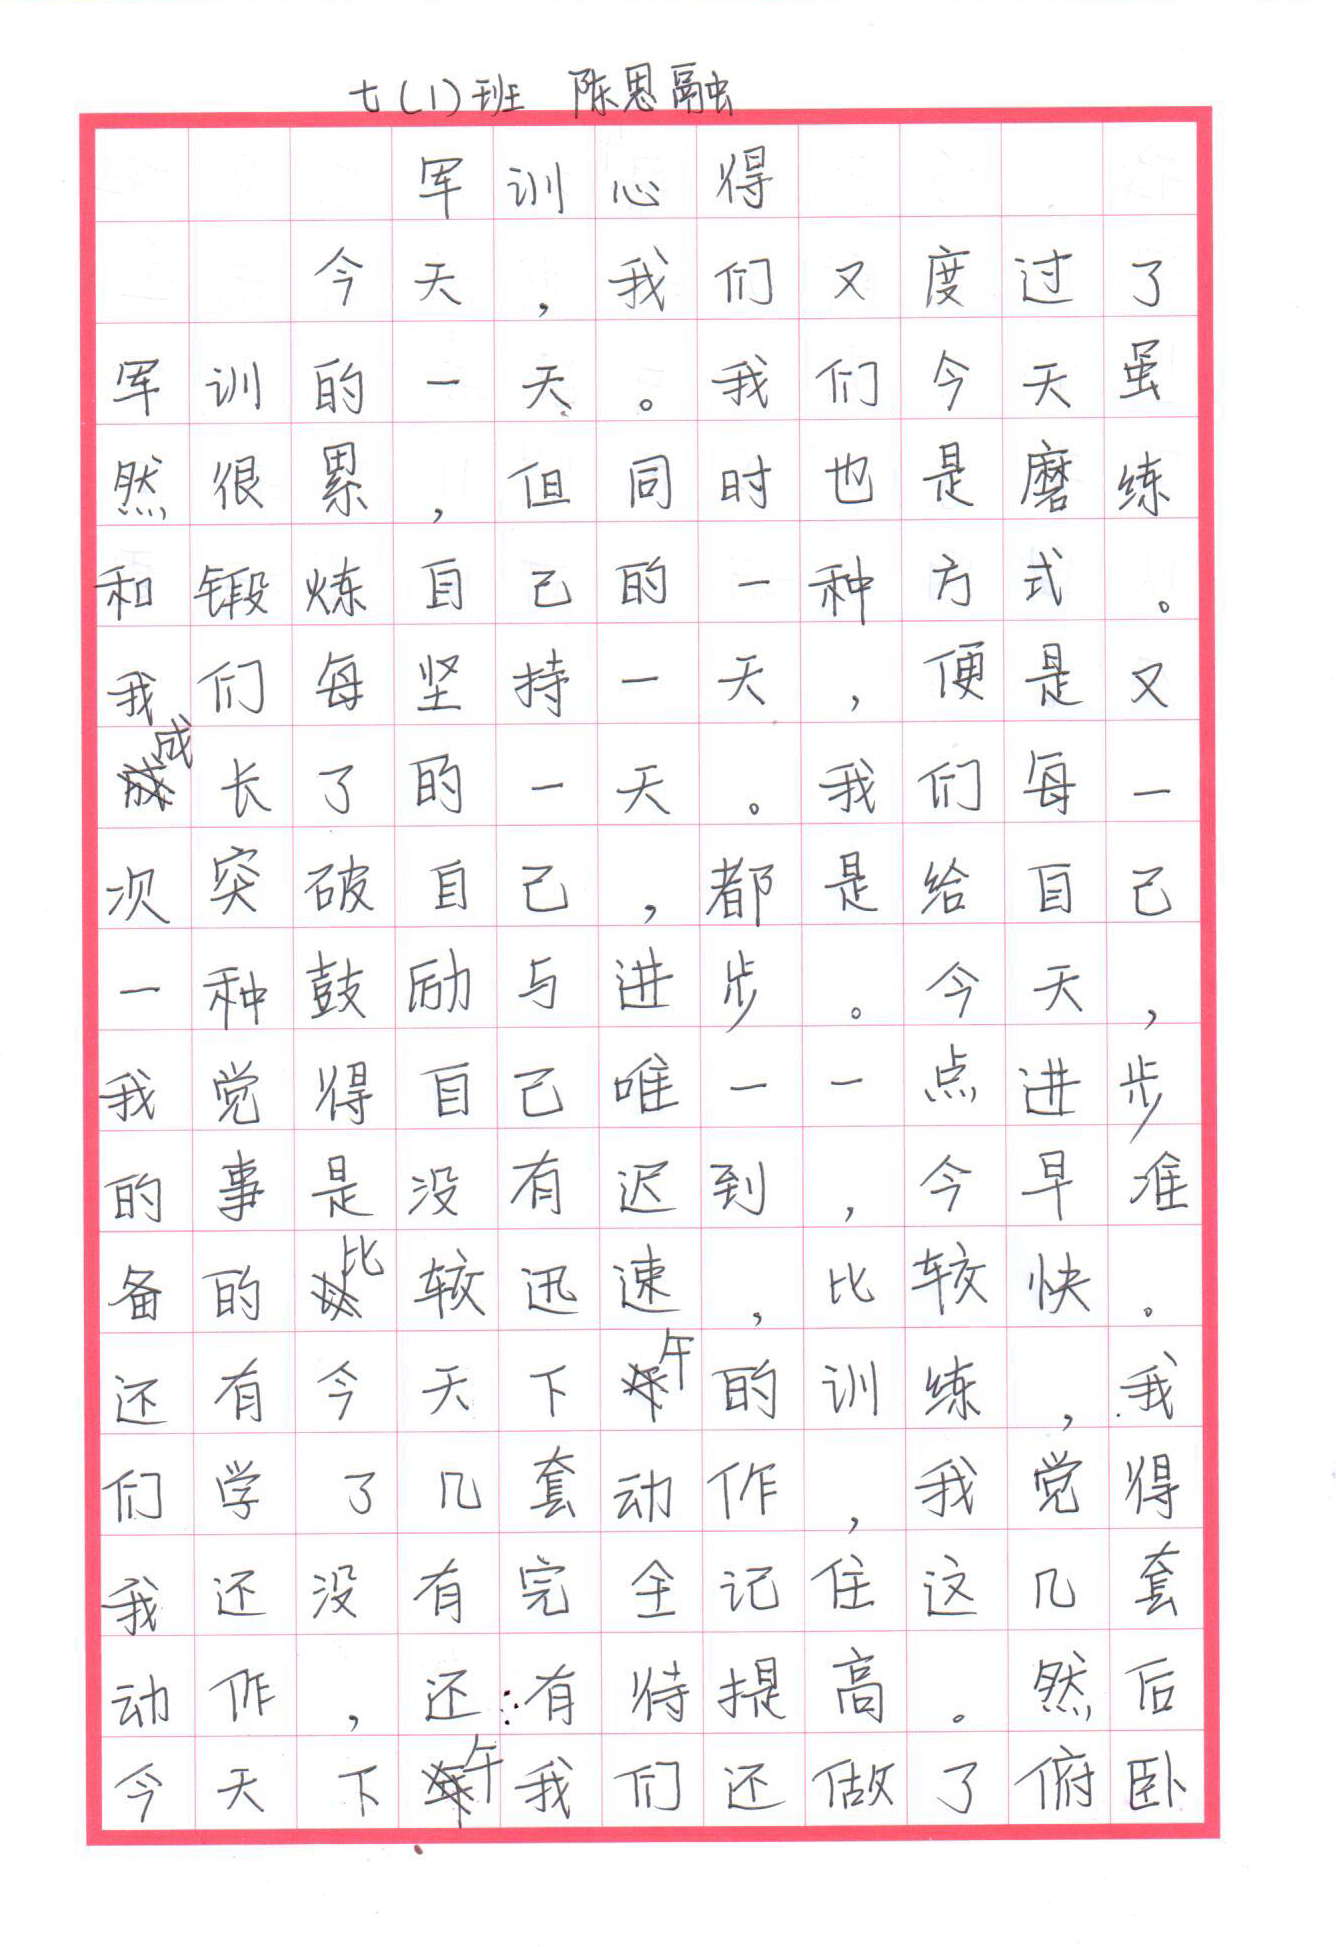 七(1)班 陈恩融
军训心得
今天，我们又度过了
军训的一天。我们今天虽
然很累，但同时也是磨练
和锻炼自己的一种方式。
我们每坚持一天，便是又
成长了的一天。我们每一
次突破自己，都是给自己
一种鼓励与进步。今天，
我觉得自己唯一一点进步
的事是没有迟到，今早准
备的比较迅速，比较快。
还有今天下午的训练，我
们学了几套动作，我觉得
我还没有完全记住这几套
动作，还有待提高。然后
今天下午我们还做了俯卧